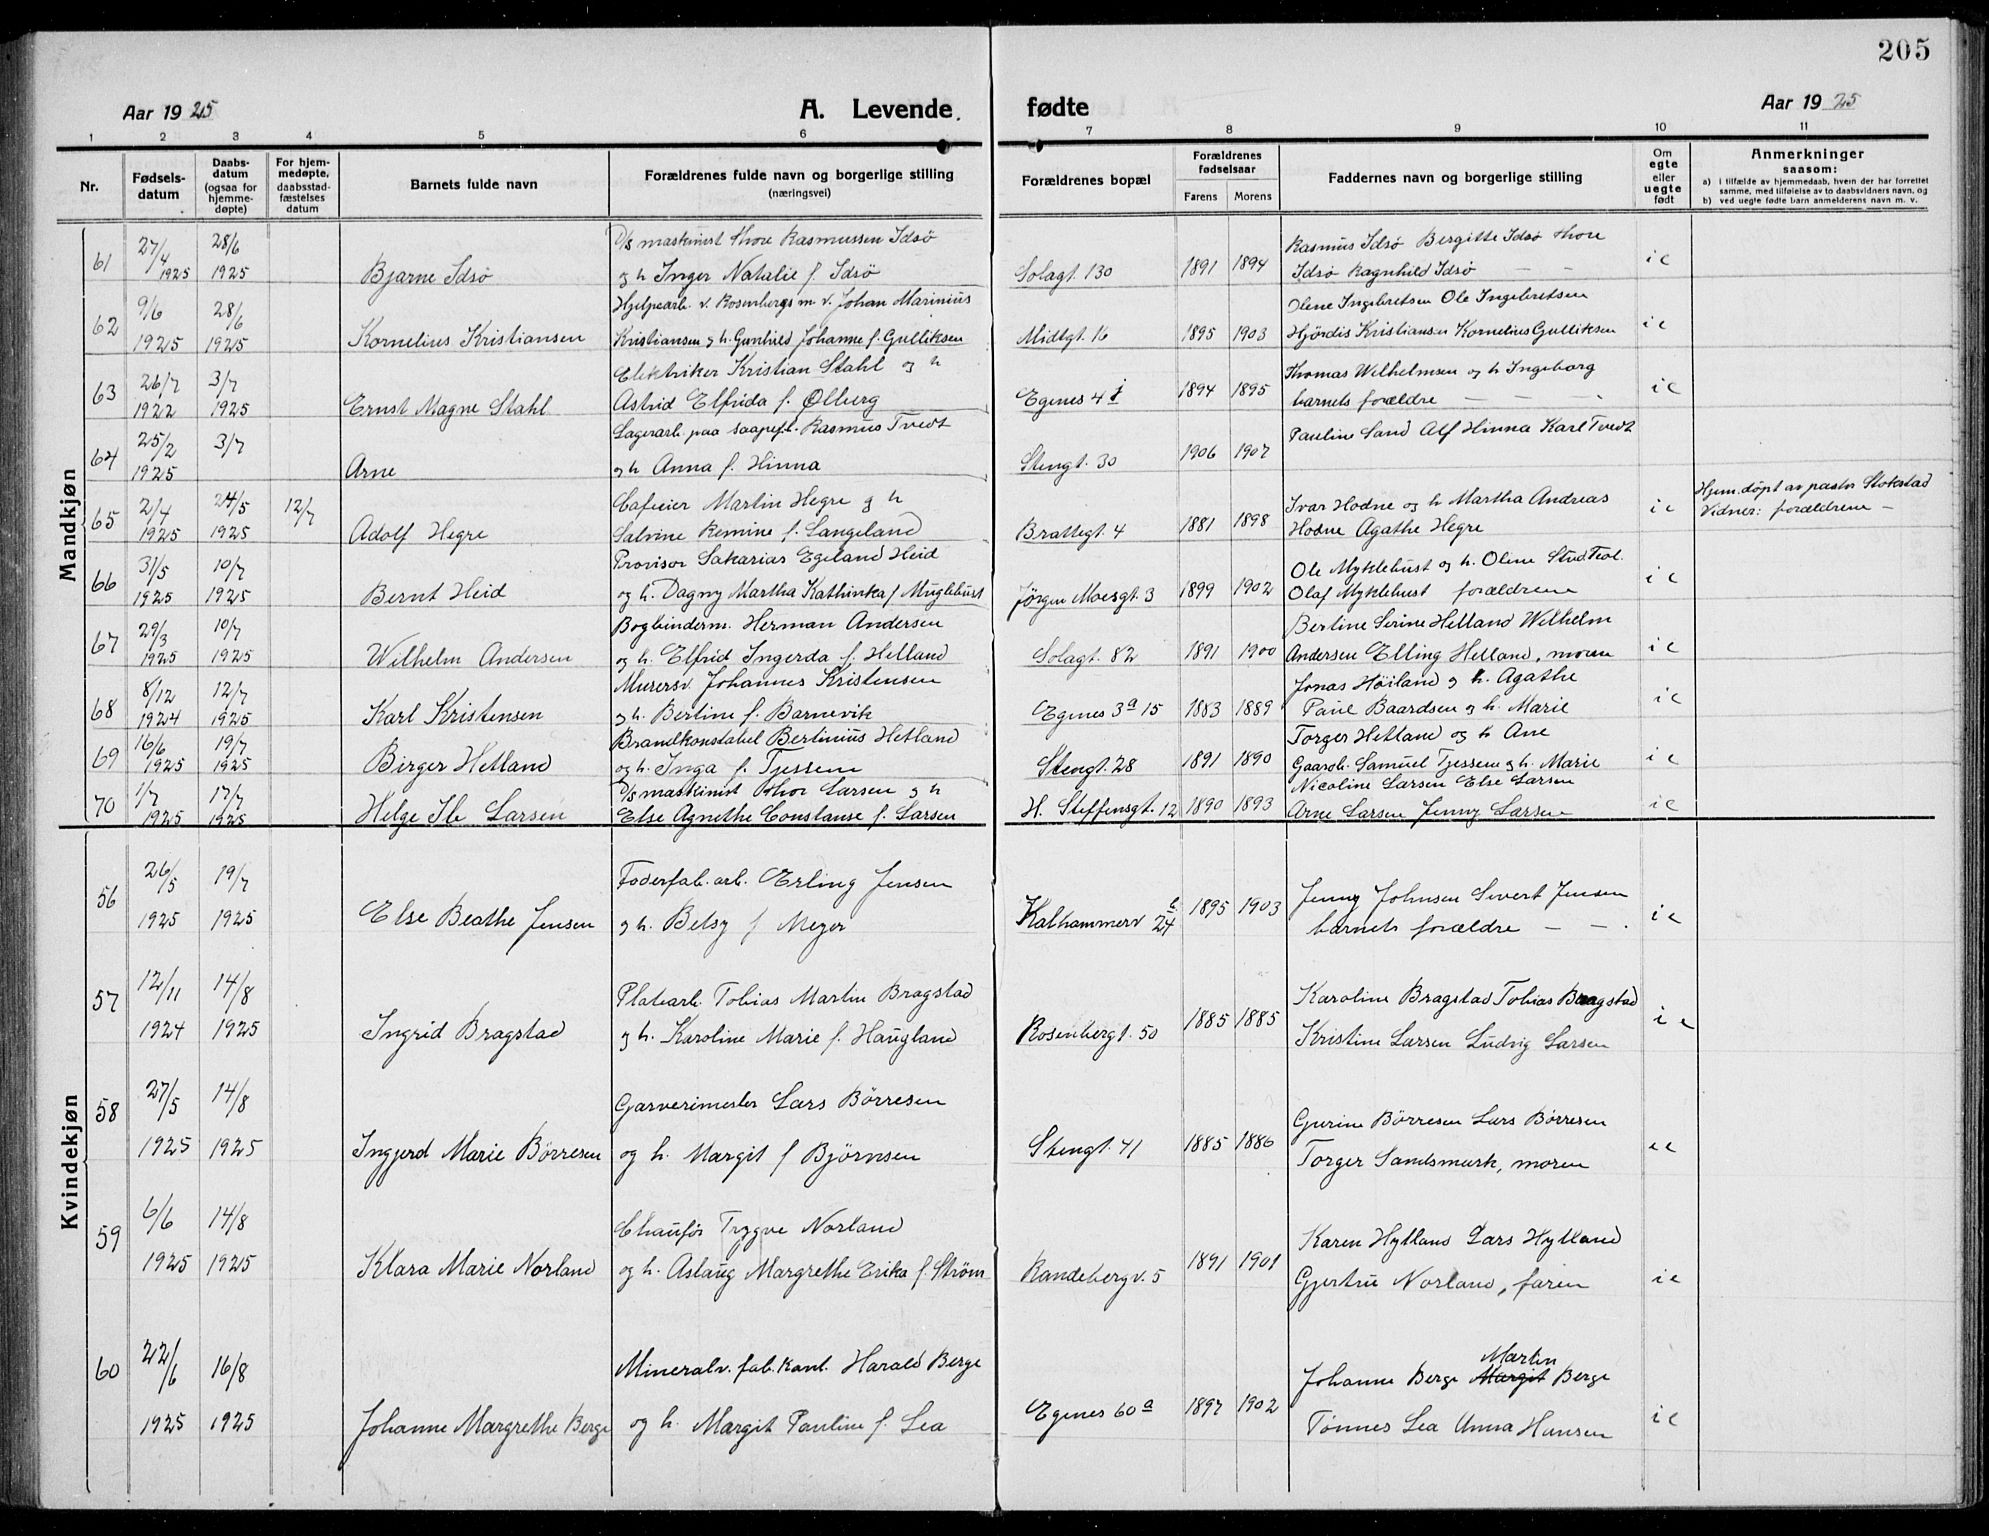 205
Aar 1925 A. Levende fødte Aar 1925
1 2 3 4 5 6 7 8 9 10 11
Nr. Fødselsdatum Daabsdatum (ogsaa for hjemmedøpte) For hjemmedøpte, daabsstadfæstelses datum Barnets fulde navn Forældrenes fulde navn og borgerlige stilling (næringsvei) Forældrenes bopæl Forældrenes fødselsaar Farens Morens Faddernes navn og borgerlige stilling Om egte eller uegte født Anmerkninger saasom:
a) i tilfælde av hjemmedaab, hvem der har forrettet samme, med tilføielse av to daabsvidners navn, og
b) ved uegte fødte barn anmelderens navn m. v.
Mandkjøn
61 27/4 1925 28/6 1925 Bjarne Idsø D/s maskinist Thore Rasmussen Idsø
og h Inger Natalie f. Idsø Solagt. 130 1891 1894 Rasmus Idsø Bergitte Idsø Thore
Idsø Ragnhild Idsø — — i e
62 9/6 1925 28/6 1925 Kornelius Kristiansen Hjelpearb. v. Rosenbergs m v. Johan Marinius
Kristiansen og h. Gunhild Johanne f. Gulliksen Midtgt. 16 1895 1903 Olene Ingebretsen Ole Ingebretsen
Hjördis Kristiansen Kornelius Gulliksen i e
63 26/7 1922 3/7 1925 Ernst Magne Stahl Elektriker Kristian Stahl og h
Astrid Elfrida f. Ølberg Egenes 4 i 1894 1895 Thomas Wilhelmsen og h Ingeborg
barnets forældre — — i e
64 25/2 1925 3/7 Arne Lagerarb. paa saapef. Rasmus Tvedt
og h Anna f. Hinna Stengt. 30 1906 1907 Pauline Sand Alf Hinna Karl Tvedt
65 2/4 1925 24/5 1925 12/7 Adolf Hegre Cafeier Martin Hegre og h
Salvine Remine f. Langeland Brattegt. 4 1881 1898 Ivar Hodne og h Martha Andreas
Hodne Agathe Hegre i e Hjem.døpt av pastor Stokstad
Vidner: forældrene —
66 31/5 1925 10/7 1925 Bernt Heid Provisor Sakarias Egeland Heid
og h. Dagny Martha Kathinka f Muglebust Jörgen Moesgt. 3 1899 1902 Ole Myklebust og h. Olene Stud. Teol.
Olaf Myklebust forældrene i e
67 29/3 1925 10/7 1925 Wilhelm Andersen Bogbinderm. Herman Andersen
og h. Elfrid Ingerda f. Helland Solagt. 82 1891 1900 Bertine Serine Helland Wilhelm
Andersen Elling Helland, moren i e
68 8/12 1924 12/7 1925 Karl Kristensen Murersv. Johannes Kristensen
og h. Bertine f. Barnevik Egenes 3a 15 1883 1889 Jonas Höiland og h. Agathe
Paul Baardsen og h. Marie i e
69 16/6 1925 19/7 1925 Birger Hetland Brandkonstabel Bertinius Hetland
og h. Inga f. Tjessem Stengt. 28 1891 1890 Torger Hetland og h Ane
Gaarb. Samuel Tjessem og h. Marie i e
70 1/7 1925 17/7 1925 Helge Ib Larsen D/s maskinist Thor Larsen og h
Else Agnethe Constanse f. Larsen H. Steffensgt. 12 1890 1893 Nicoline Larsen Else Larsen
Arne Larsen Jenny Larsen i e
Kvindekjøn
56 26/5 1925 19/7 1925 Else Beathe Jensen Foderfab. arb. Erling Jensen
og h. Betsy f Meyer Kalhammerv 24 1895 1903 Jenny Johnsen Sivert Jensen
barnets forældre — — i e
57 12/11 1924 14/8 1925 Ingrid Bragstad Platearb. Tobias Martin Bragstad
og h. Karoline Marie f. Haugland Rosenbergt. 50 1885 1885 Karoline Bragstad Tobias Bragstad
Kristine Larsen Ludvig Larsen i e
58 27/5 1925 14/8 1925 Ingjerd Marie Börresen Garverimester Lars Börresen
og h. Margit f Björnsen Stengt. 41 1885 1886 Gurine Börresen Lars Börresen
Torger Sandsmark, moren i e
59 6/6 1925 14/8 1925 Klara Marie Norland Chauför Trygve Norland
og h. Aslaug Margrethe Erika f. Ström Randebergv. 5 1891 1901 Karen Hylland Lars Hylland
Gjertru Norland, faren i e
60 22/6 1925 16/8 1925 Johanne Margrethe Berge Mineralv. fab. kant. Harald Berge
og h. Margit Pauline f. Lea Egenes 60a 1897 1902 Johanne Berge Margit Martin Berge
Tönnes Lea Anna Hansen i e